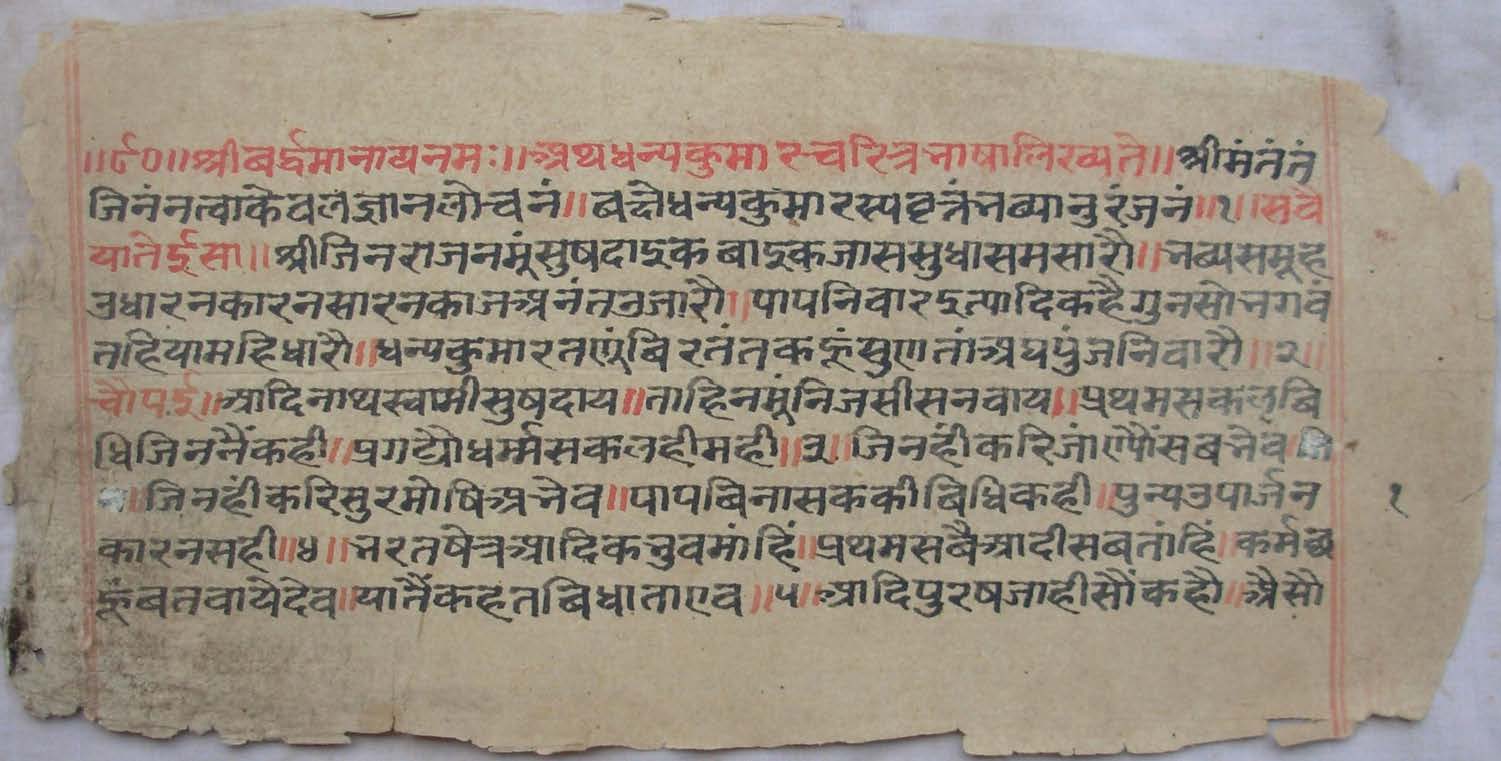 ॥ ९० ॥ श्रीबर्द्धमानायनमः ॥ अथधन्यकुमारचरित्रभाषालिख्यते ॥ श्रीमंतंतं
जिनंनत्वाकेवलज्ञानलोचनं ॥ बदौधन्यकुमारस्यवृत्तंभव्यानुरंजनं ॥ १ ॥ सवै
यातेईसा ॥ श्रीजिनराजनमूंसुषदाइकबाइकजाससुधासमसारौ ॥ भव्यसमूह
उधारनकारनसारनकाजअनंतउजारौ ॥ पापनिवारइत्यादिकहैगुनसोभगवं
तहियामहिधारौ ॥ धन्यकुमारतणूंबिरतंतकहूंसुणतांअघपुंजनिवारौ ॥ २ ॥
चौपई ॥ आदिनाथस्वामीसुषदाय ॥ ताहिनमूंनिजसीसनवाय ॥ प्रथमसकलबि
धिजिननैंकही ॥ प्रगट्यौधर्म्मसकलहीमही ॥ ३ ॥ जिनहींकरिजांण्यौंसबभेव
॥ जिनहींकरिसुरमोषिअभेव ॥ पापबिनासककीबिधिकही ॥ पुन्यउपार्जन
कारनसही ॥ ४ ॥ भरतषेत्रआदिकभुवमांहिं ॥ प्रथमसबैआदीसबतांहिं ॥ कर्मछ
हूंबतवायेदेव ॥ यातैंकहतबिधाताएव ॥ ५ ॥ आदिपुरषजाहीसौंकहौ ॥ अैसौ
१